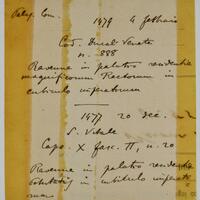 1479 4 febbraio
Cod. Ducal Veneto
n. 888
Ravenne in palatio residentie
magnificorum Rectorum in
cubiculo imperatorum
1477 20 dec.
S. Vitale
Caps. X fasc. II, n. 20
Ravenne in palatio residentie
in cubiculo imperato
rum